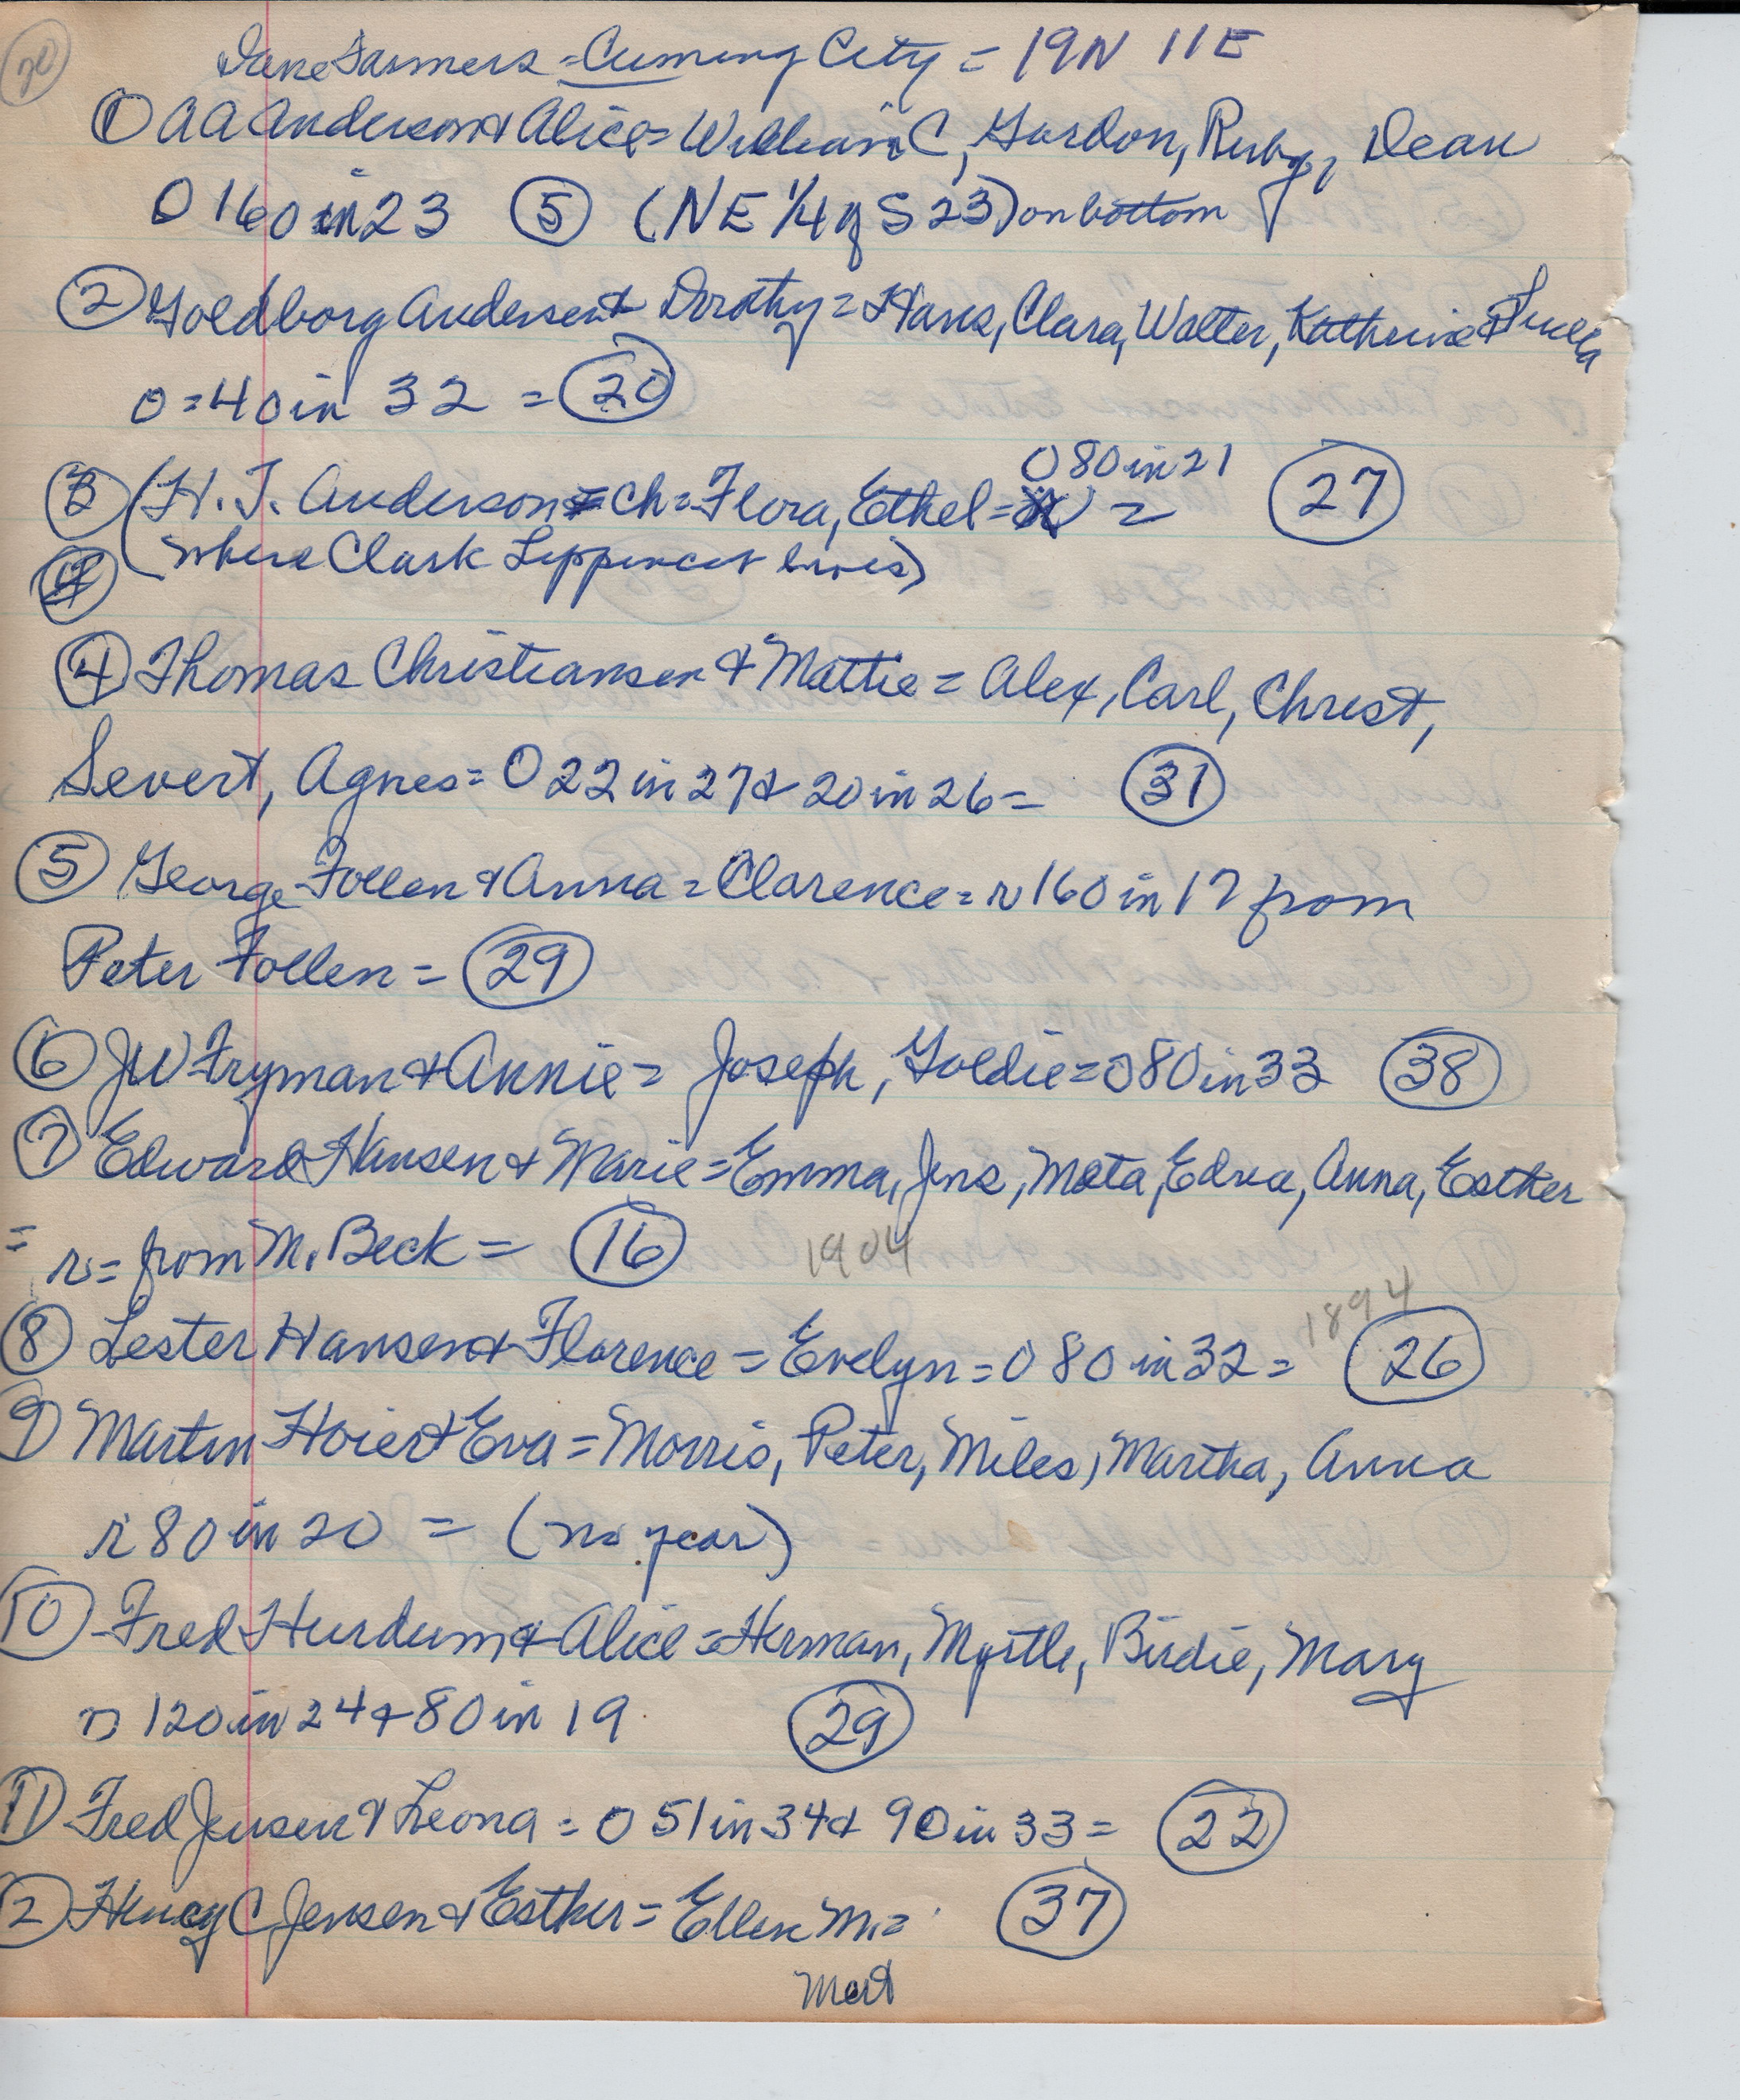 20
Dane Farmers = Cuming City = 19N 11E
① AA Anderson & Alice = William C, Gordon, Ruby, Dean
O 160 in 23 ⑤ (NE 1/4 of S 23) on bottom
② Goldborg Andersen & Dorothy = Hans, Clara, Walter, Kathrine &
O = 40 in 32 = ⑳
O 80 in 21
③ (H. J. Anderson = ch = Flora, Ethel = = ㉗
(where Clark Lippincot lives)
④ Thomas Christiansen & Mattie = Alex, Carl, Christ,
Severt, Agnes = O 22 in 27 & 20 in 26 = ㉛
⑤ George Follen & Anna = Clarence = r 160 in 17 from
Peter Follen = ㉙
⑥ JW Fryman & Annie = Joseph, Goldie = O 80 in 33 ㊳
⑦ Edward Hansen & Marie = Emma, Jens, Meta, Edna, Anna, Esther
= r = from M. Beck = ⑯ 1904
1894
⑧ Lester Hansen & Florence = Evelyn = O 80 in 32 = ㉖
⑨ Martin Hoier & Eva = Morris, Peter, Miles, Martha, Anna
r 80 in 20 = (no year)
⑩ Fred Hurdum & Alice = Herman, Myrtle, Birdie, Mary
r 120 in 24 & 80 in 19 ㉙
⑪ Fred Jensen & Leona = O 51 in 34 & 90 in 33 = ㉒
2 Henry C Jensen & Esther = Ellen M = ㊲